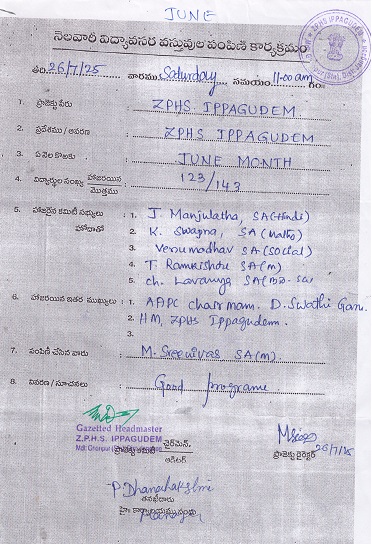 JUNE
నెలవారీ విద్యావసర వస్తువుల పంపిణీ కార్యక్రమం
తేది. 26/7/25 వారము Saturday సమయం. 11-00 am గం
1. ప్రాజెక్టు పేరు : ZPHS IPPAGUDEM
2. ప్రదేశము / ఆవరణ : ZPHS IPPAGUDEM
3. ఏ నెల కొఱకు : JUNE MONTH
4. విద్యార్థుల సంఖ్య హాజరయిన / మొత్తము : 123/143
5. హాజరైన కమిటీ సభ్యులు : 1. J. Manjulatha, SA(Hindi)
హోదాతో 2. K. Swapna, SA (Maths)
3. Venumadhav SA (Social)
4. T. Ramkishou SA (M)
5. Ch. Lavanya SA
6. హాజరయిన ఇతర ముఖ్యులు : 1. AAPC chairmam. D. Swathi Garu.
2. HM, ZPHS Ippagudem.
3.
7. పంపిణీ చేసిన వారు : M. Sreenivas SA (M).
8. వివరణ / సూచనలు : Good programe
Gazetted Headmaster
Z.P.H.S. IPPAGUDEM
ప్రాజెక్టు కమిటీ చైర్మెన్,
ఆడిటర్
ప్రాజెక్టు డైరెక్టర్ 26/7/25
P Dhanalakshmi
తనఖీదారు